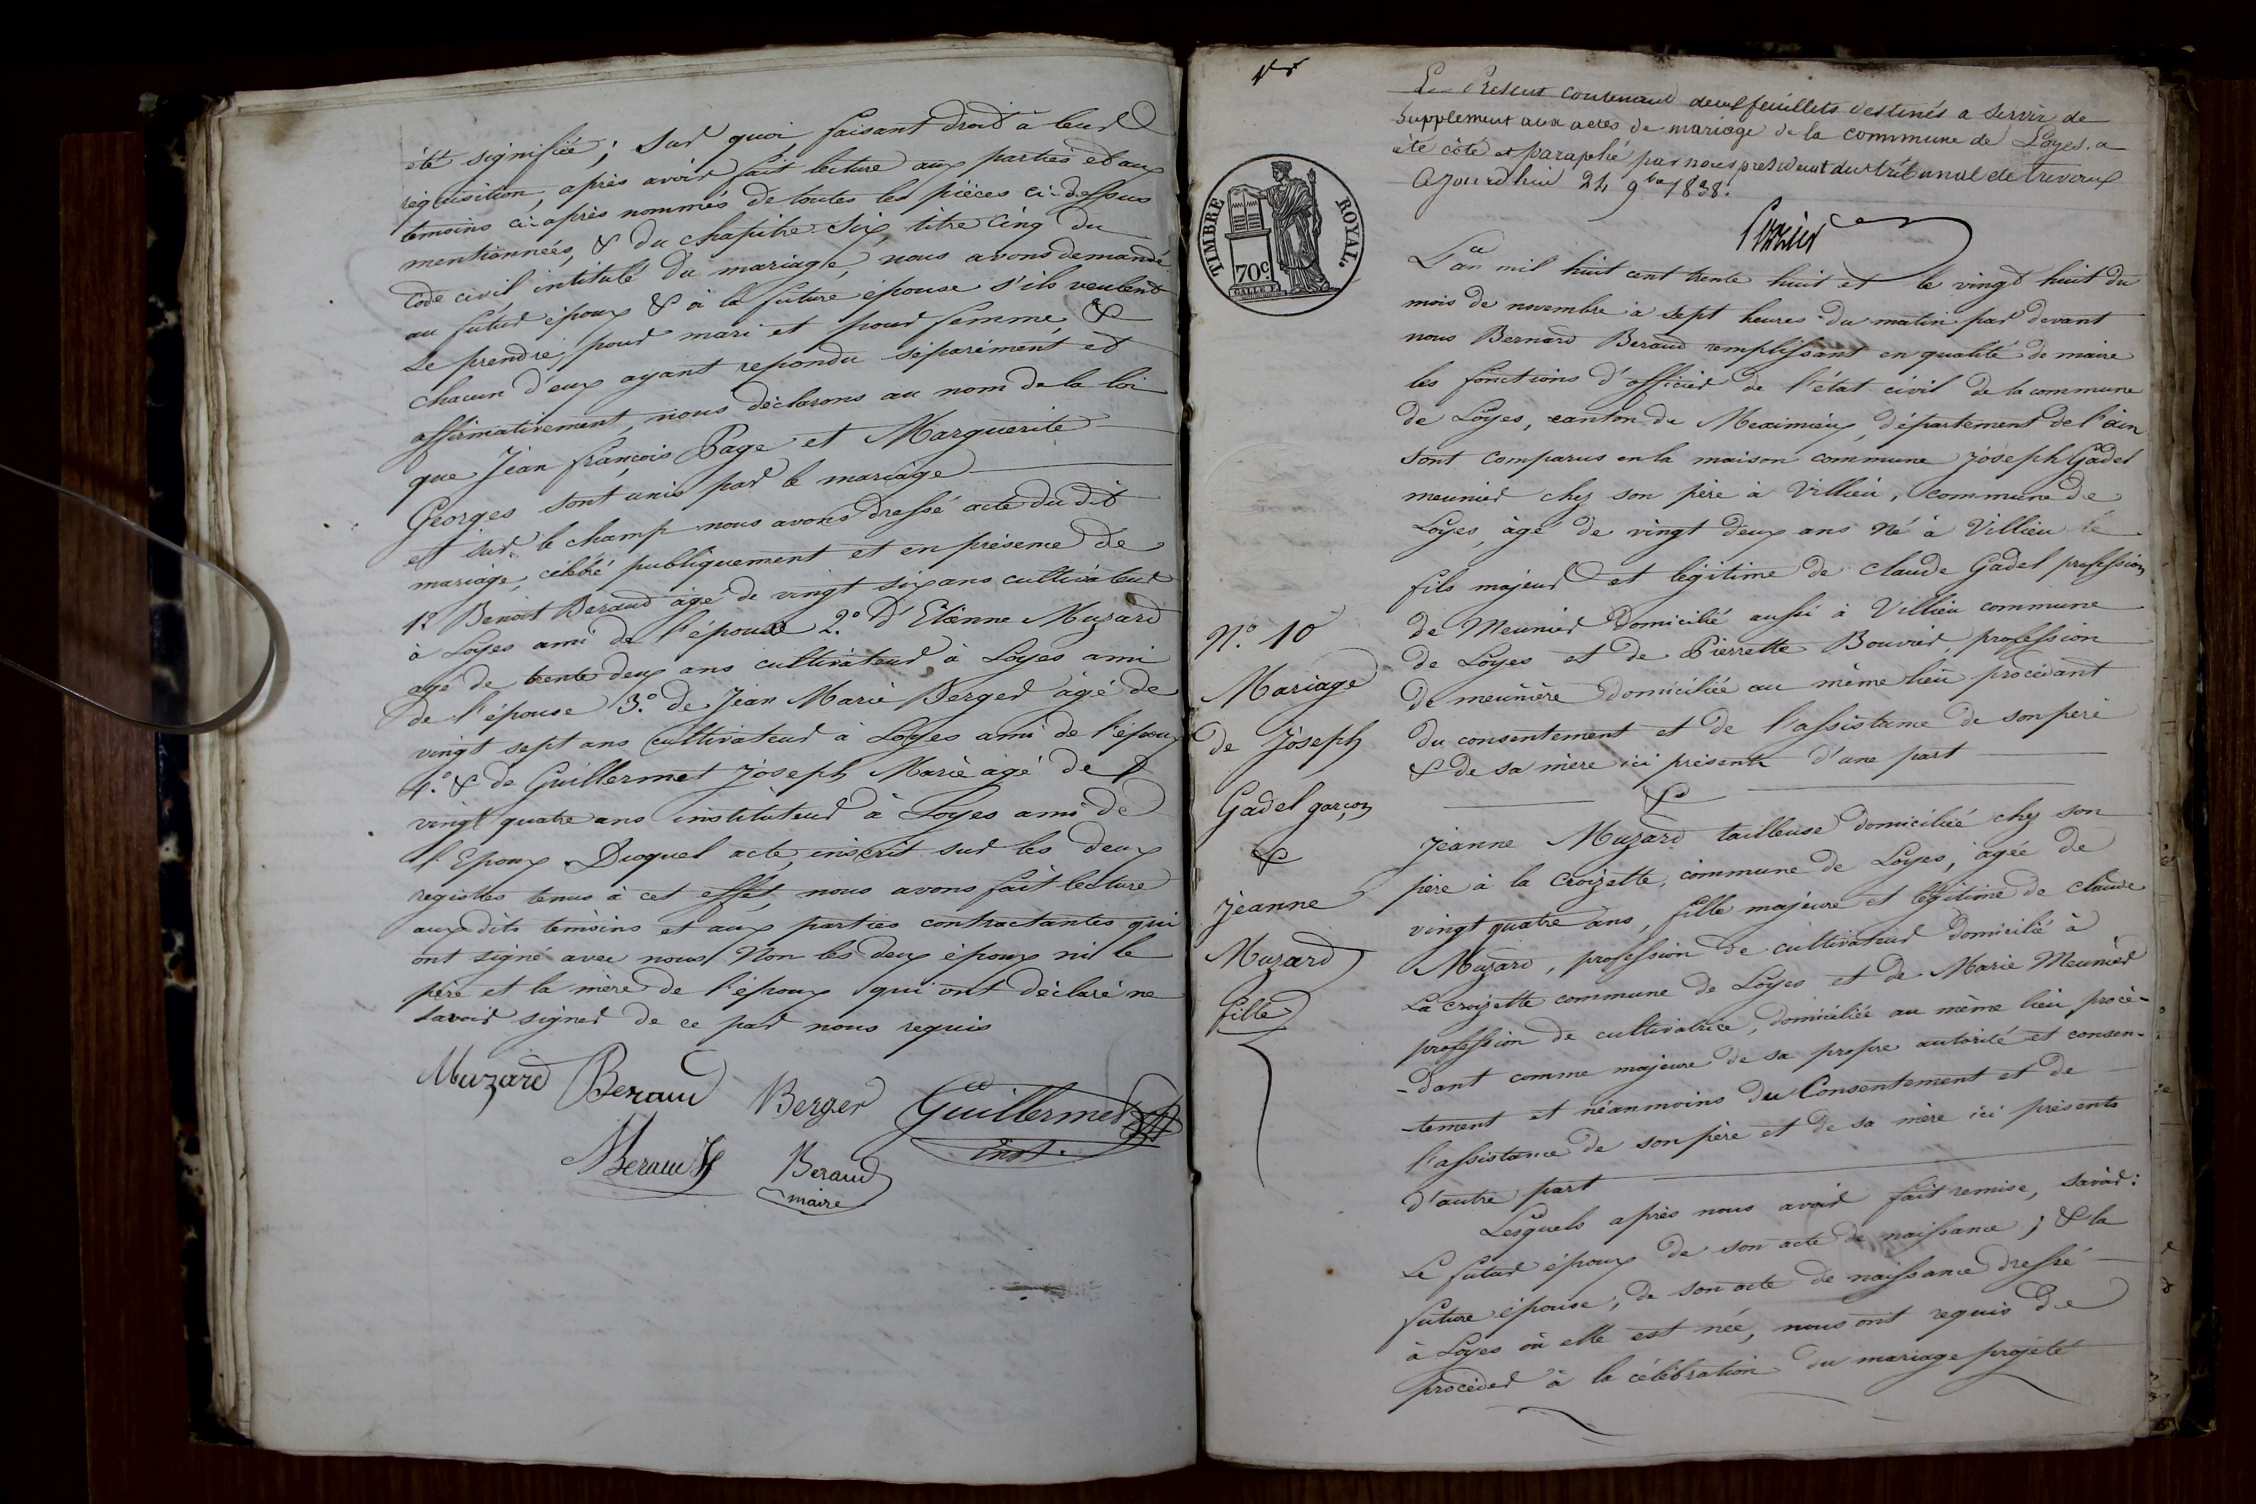 été signifiée ; Sur quoi, faisant droit à leur
réquisition, après avoir fait lecture aux parties et aux
temoins ci-après nommés de toutes les pièces ci-dessus
mentionnées, & du chapitre Six, titre cinq du
Code civil intitulé du mariage, nous avons demandé
au futur époux & à la future épouse s'ils veulent
se prendre, pour mari et pour femme, &
chacun d'eux ayant repondu séparément et
affirmativement, nous déclarons au nom de la loi
que Jean françois Page et Marguerite
Georges sont unis par le mariage
et sur le champ nous avons dressé acte du dit
mariage, célébré publiquement et en présence de
1º. Benoit Beraud âgé de vingt six ans cultivateur
à Loyes ami de l'époux 2.º D'Etienne Muzard
agé de trente deux ans cultivateur à Loyes ami
de l'épouse 3.º de Jean Marie Berger âgé de
vingt sept ans cultivateur à Loyes ami de l'époux
4.º & de Guillermet Joseph Marie âgé de
vingt quatre ans instituteur à Loyes ami de
l'Epoux. Duquel acte, inscrit sur les deux
registres tenus à cet effet, nous avons fait lecture
aux dits témoins et aux parties contractantes qui
ont signé avec nous Non les deux époux ni le
père et la mère de l'époux qui ont déclaré ne
savoir signer de ce par nous requis
Muzard Beraud Berger Guillermet
inst.
Beraud Beraud
maire
Le Présent contenant deux feuillets destinés a servir de
Supplement aux actes de mariage de la commune de Loyes. a
été côté et paraphé par nous president du tribunal de trevoux
Ajourdhui 24 9bre 1838.
TIMBRE ROYAL.
70c.
L'an mil huit cent trente huit et le vingt huit du
mois de novembre à sept heures du matin par devant
nous Bernard Beraud remplissant en qualité de maire
les fonctions d'officier de l'état civil de la commune
de Loyes, canton de Meximieux, département de l'ain
sont comparus en la maison commune Joseph Gadel
meunier chez son père à Villieu, commune de
Loyes, âgé de vingt deux ans né à Villieu
fils majeur et légitime de Claude Gadel profession
de Meunier domicilié aussi à Villieu commune
de Loyes et de Pierrette Bouvier, profession
de meunière domiciliée au même lieu procédant
du consentement et de l'assistance de son père
& de sa mère ici présents d'une part
&
Nº. 10
Mariage
de Joseph
Gadel garçon
&
Jeanne
Muzard
fille
Jeanne Muzard tailleuse domiciliée chez son
père à la Croizette, commune de Loyes, âgée de
vingt quatre ans, fille majeure et légitime de Claude
Muzard, profession de cultivateur domicilié à
La croizette commune de Loyes et de Marie Meunier
profession de cultivatrice, domiciliée au même lieu procé-
-dant comme majeure de sa propre autorité et consen-
tement et néanmoins du Consentement et de
l'assistance de son père et de sa mère ici présents
d'autre part
Lesquels après nous avoir fait remise, savoir :
Le futur époux de son acte de naissance ; & la
future épouse, de son acte de naissance dressé
à Loyes où elle est née, nous ont requis de
procéder à la célébration du mariage projeté